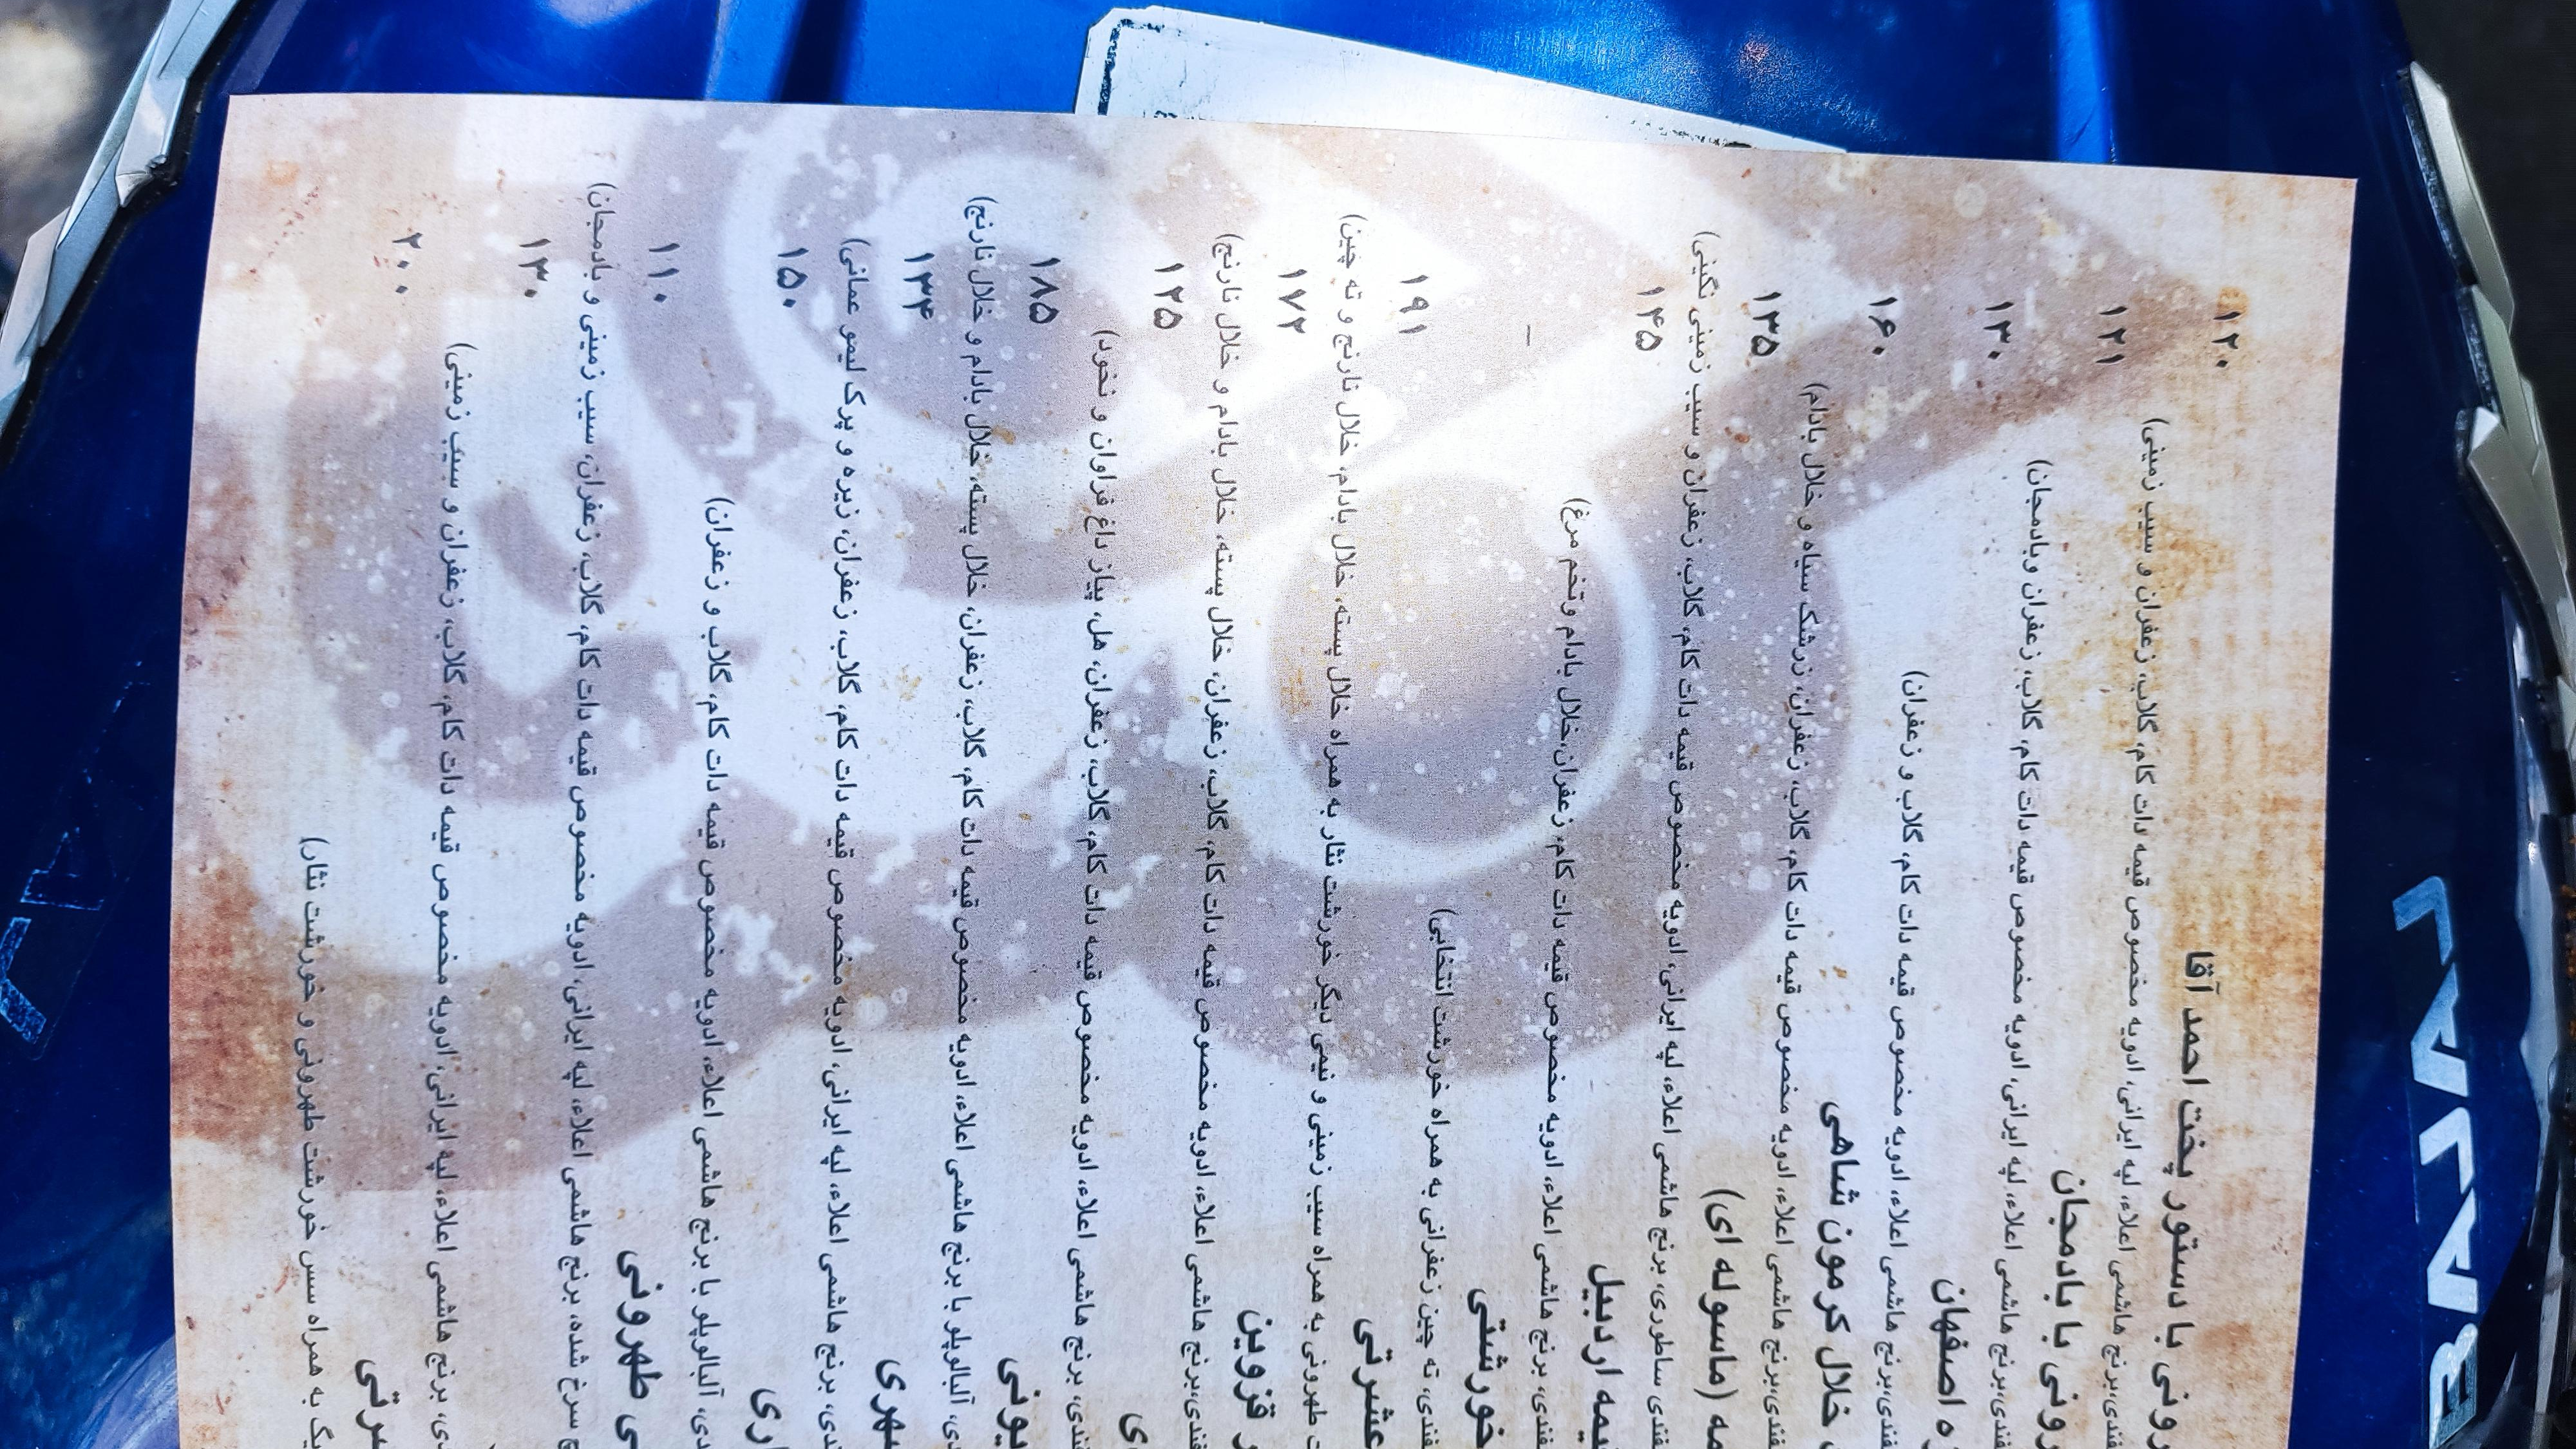 با دستور پخت احمد آقا ۱۲۰
برنج هاشمی اعلاء، لپه ایرانی، ادویه مخصوص قیمه دات کام، گلاب، زعفران و سیب زمینی)
با بادمجان ۱۲۱
برنج هاشمی اعلاء، لپه ایرانی، ادویه مخصوص قیمه دات کام، گلاب، زعفران وبادمجان)
اصفهان ۱۳۰
برنج هاشمی اعلاء، ادویه مخصوص قیمه دات کام، گلاب و زعفران)
خلال کرمون شاهی ۱۶۰
برنج هاشمی اعلاء، ادویه مخصوص قیمه دات کام، گلاب، زعفران، زرشک سیاه و خلال بادام)
(ماسوله ای) ۱۳۵
ساطوری، برنج هاشمی اعلاء، لپه ایرانی، ادویه مخصوص قیمه دات کام، گلاب، زعفران و سیب زمینی نگینی)
اردبیل ۱۴۵
برنج هاشمی اعلاء، ادویه مخصوص قیمه دات کام، زعفران،خلال بادام وتخم مرغ)
خورشتی –
ته چین زعفرانی به همراه خورشت انتخابی)
عشرتی ۱۹۱
طهرونی به همراه سیب زمینی و نیمی دیگر خورشت نثار به همراه خلال پسته، خلال بادام، خلال نارنج و ته چین)
قزوین ۱۷۲
برنج هاشمی اعلاء، ادویه مخصوص قیمه دات کام، گلاب، زعفران، خلال پسته، خلال بادام و خلال نارنج)
۱۲۵
برنج هاشمی اعلاء، ادویه مخصوص قیمه دات کام، گلاب، زعفران، هل، پیاز داغ فراوان و نخود)
۱۸۵
آلبالوپلو با برنج هاشمی اعلاء، ادویه مخصوص قیمه دات کام، گلاب، زعفران، خلال پسته، خلال بادام و خلال نارنج)
۱۳۴
برنج هاشمی اعلاء، لپه ایرانی، ادویه مخصوص قیمه دات کام، گلاب، زعفران، زیره و پرک لیمو عمانی)
۱۵۰
آلبالوپلو با برنج هاشمی اعلاء، ادویه مخصوص قیمه دات کام، گلاب و زعفران)
طهرونی ۱۱۰
سرخ شده، برنج هاشمی اعلاء، لپه ایرانی، ادویه مخصوص قیمه دات کام، گلاب، زعفران، سیب زمینی و بادمجان)
۱۳۰
برنج هاشمی اعلاء، لپه ایرانی، ادویه مخصوص قیمه دات کام، گلاب، زعفران و سیب زمینی)
۲۰۰
به همراه سس خورشت طهرونی و خورشت نثار)
BAJAJ